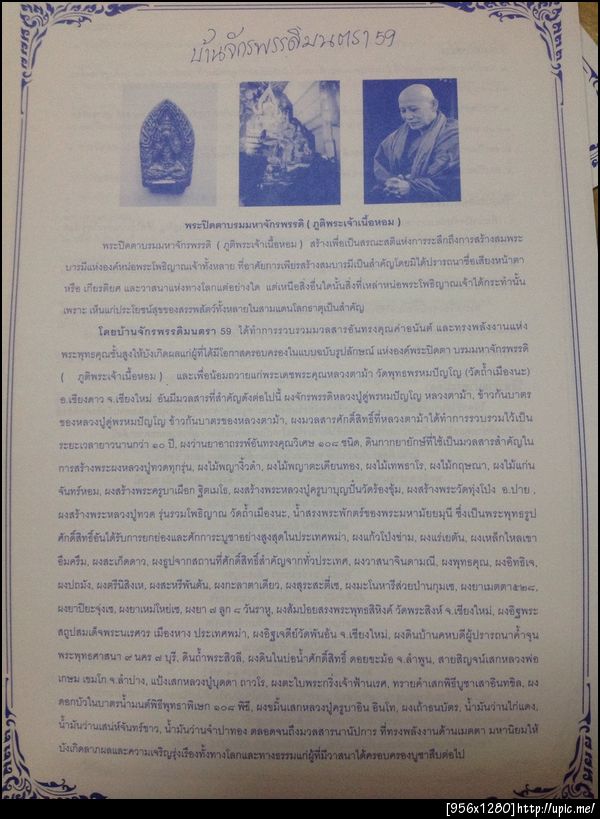 บ้านจักรพรรดิมนตรา 59
พระปิดตาบรมมหาจักรพรรดิ ( ภูติพระเจ้าเนื้อหอม )
พระปิดตาบรมมหาจักรพรรดิ ( ภูติพระเจ้าเนื้อหอม ) สร้างเพื่อเป็นสรณะสติแห่งการระลึกถึงการสร้างสมพระ
บารมีแห่งองค์หน่อพระโพธิญาณเจ้าทั้งหลาย ที่อาศัยการเพียรสร้างสมบารมีเป็นสำคัญโดยมิได้ปรารถนาชื่อเสียงหน้าตา
หรือ เกียรติยศ และวาสนาแห่งทางโลกแต่อย่างใด แต่เหนือสิ่งอื่นใดนั้นสิ่งที่เหล่าหน่อพระโพธิญาณเจ้าได้กระทำนั้น
เพราะ เห็นแก่ประโยชน์สุขของสรรพสัตว์ทั้งหลายในสามแดนโลกธาตุเป็นสำคัญ
โดยบ้านจักรพรรดิมนตรา 59 ได้ทำการรวบรวมมวลสารอันทรงคุณค่าอนันต์ และทรงพลังงานแห่ง
พระพุทธคุณชั้นสูงให้บังเกิดผลแก่ผู้ที่ได้มีโอกาสครอบครองในแบบฉบับรูปลักษณ์ แห่งองค์พระปิดตา บรมมหาจักรพรรดิ
( ภูติพระเจ้าเนื้อหอม ) และเพื่อน้อมถวายแก่พระเดชพระคุณหลวงตาม้า วัดพุทธพรหมปัญโญ (วัดถ้ำเมืองนะ)
อ.เชียงดาว จ.เชียงใหม่ อันมีมวลสารที่สำคัญดังต่อไปนี้ ผงจักรพรรดิหลวงปู่ดู่พรหมปัญโญ หลวงตาม้า, ข้าวก้นบาตร
ของหลวงปู่ดู่พรหมปัญโญ ข้าวก้นบาตรของหลวงตาม้า, ผงมวลสารศักดิ์สิทธิ์ที่หลวงตาม้าได้ทำการรวบรวมไว้เป็น
ระยะเวลายาวนานกว่า ๑๐ ปี, ผงว่านยาอาถรรพ์อันทรงคุณวิเศษ ๑๐๘ ชนิด, ดินกากยายักษ์ที่ใช้เป็นมวลสารสำคัญใน
การสร้างพระผงหลวงปู่ทวดทุกรุ่น, ผงไม้พญางิ้วดำ, ผงไม้พญาตะเคียนทอง, ผงไม้เทพธาโร, ผงไม้กฤษณา, ผงไม้แก่น
จันทร์หอม, ผงสร้างพระครูบาเผือก ฐิตเมโธ, ผงสร้างพระหลวงปู่ครูบาบุญปั๋นวัดร้องขุ้ม, ผงสร้างพระวัดทุ่งโป่ง อ.ปาย ,
ผงสร้างพระหลวงปู่ทวด รุ่นรวมโพธิญาณ วัดถ้ำเมืองนะ, น้ำสรงพระพักตร์ของพระมหามัยยมุนี ซึ่งเป็นพระพุทธรูป
ศักดิ์สิทธิ์อันได้รับการยกย่องและศักการะบูชาอย่างสูงสุดในประเทศพม่า, ผงแก้วโป่งข่าม, ผงแร่เยตัน, ผงเหล็กไหลเขา
อึมครึม, ผงสะเก็ดดาว, ผงธูปจากสถานที่ศักดิ์สิทธิ์สำคัญจากทั่วประเทศ, ผงวาสนาจินดามณี, ผงพุทธคุณ, ผงอิทธิเจ,
ผงปถมัง, ผงตรีนิสิงเห, ผงสะหรีพันต้น, ผงกะลาตาเดียว, ผงสุระสะตี่เซ, ผงมะโนหาริสวยป่านกุมเซ, ผงยาเมตตา๕๒๘,
ผงยาปิยะจุ่งเซ, ผงยาเหม่ใหย่เซ, ผงยา ๗ ลูก ๘ วันราหู, ผงส้มป่อยสรงพระพุทธสิหิงค์ วัดพระสิงห์ จ.เชียงใหม่, ผงอิฐพระ
สถูปสมเด็จพระนเรศวร เมืองหาง ประเทศพม่า, ผงอิฐเจดีย์วัดพันอ้น จ.เชียงใหม่, ผงดินบ้านคหบดีผู้ปรารถนาค้ำจุน
พระพุทธศาสนา ๙ นคร ๗ บุรี, ดินถ้ำพระสิวลี, ผงดินในบ่อน้ำศักดิ์สิทธิ์ ดอยขะม้อ จ.ลำพูน, สายสิญจน์เสกหลวงพ่อ
เกษม เขมโก จ.ลำปาง, แป้งเสกหลวงปู่บุดดา ถาวโร, ผงตะไบพระกริ่งเจ้าฟ้านเรศ, ทรายดำเสกพิธีบูชาเสาอินทขิล, ผง
ดอกบัวในบาตรน้ำมนต์พิธีพุทธาพิเษก ๑๐๘ พิธี, ผงขมิ้นเสกหลวงปู่ครูบาอิน อินโท, ผงเถ้าธนบัตร, น้ำมันว่านไก่แดง,
น้ำมันว่านเสน่ห์จันทร์ขาว, น้ำมันว่านจำปาทอง ตลอดจนถึงมวลสารนานัปการ ที่ทรงพลังงานด้านเมตตา มหานิยมให้
บังเกิดลาภผลและความเจริญรุ่งเรืองทั้งทางโลกและทางธรรมแก่ผู้ที่มีวาสนาได้ครอบครองบูชาสืบต่อไป
[956x1280]http://upic.me/